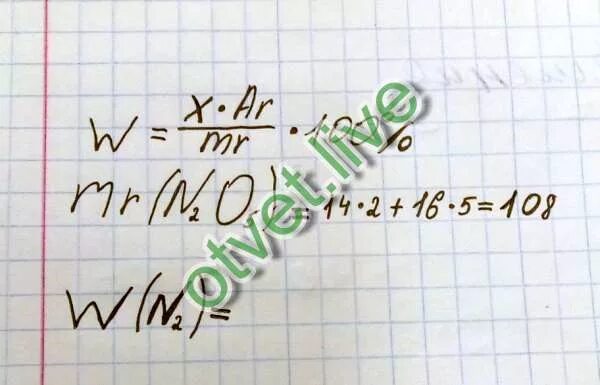 W = x·Ar / mr · 100%
mr(N₂O₅) = 14·2+16·5=108
W(N₂)=
otvet.live